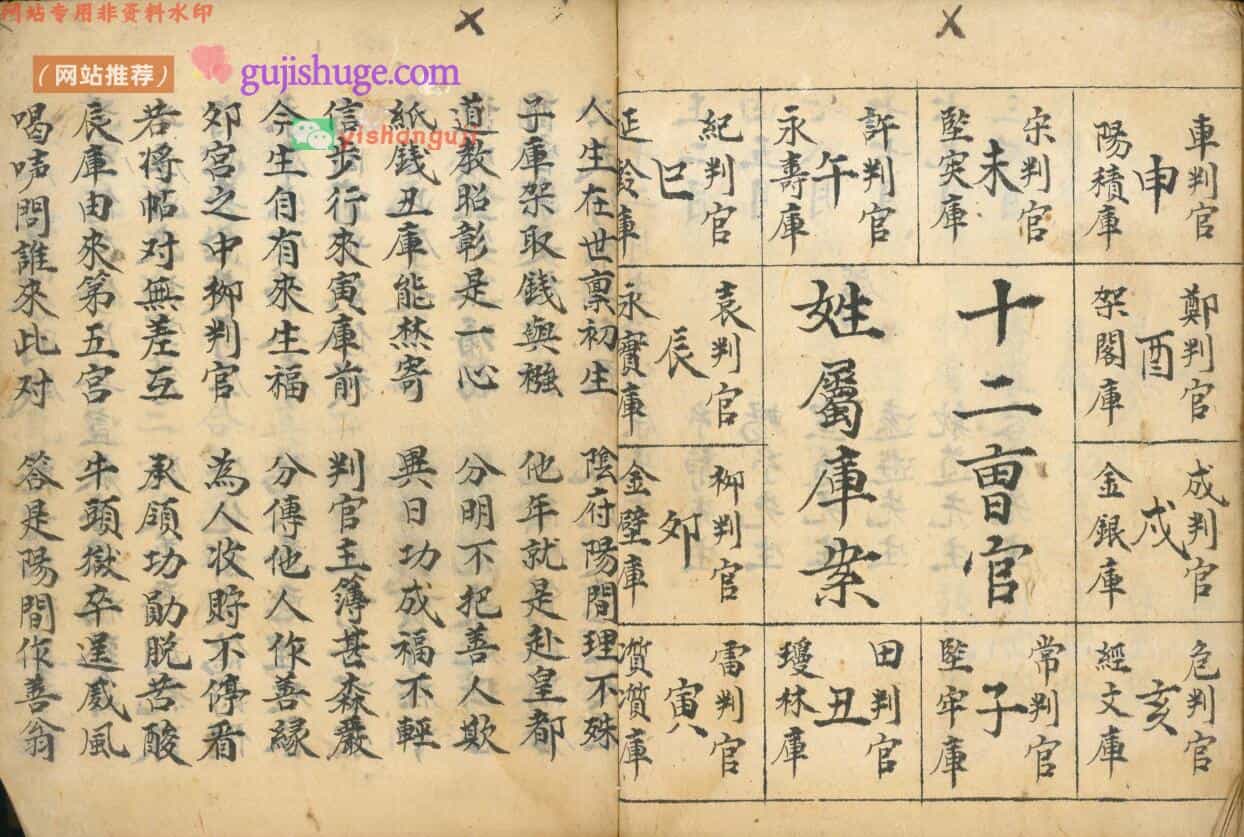 网站专用非资料水印
（网站推荐）
gujishuge.com
yishanguji
十二曹官
姓屬庫案
車判官
申
陽積庫
宋判官
未
堅突庫
許判官
午
永壽庫
紀判官
巳
鄭判官
酉
架閣庫
袁判官
辰
永寶庫
成判官
戌
金銀庫
柳判官
卯
金壁庫
危判官
亥
經文庫
常判官
子
堅牢庫
田判官
丑
瓊林庫
雷判官
寅
人生在世禀初生 陰府陽間理不殊
子庫架取錢與襁 他年就是赴皇都
道教昭彰是一心 分明不把善人欺
紙錢丑庫能焚寄 異日功成福不輕
信步行來寅庫前 判官主簿甚森嚴
今生自有來生福 分傳他人作善緣
卯宮之中柳判官 為人收貯不停看
若將帖对無差互 承領功勛脱苦酸
辰庫由來第五宮 牛頭獄卒逞威風
喝 問誰來此对 答是陽間作善翁